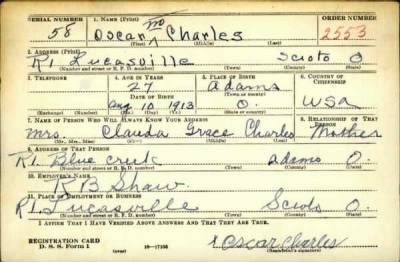 SERIAL NUMBER 1. NAME (Print) ORDER NUMBER
58 Oscar no Charles 2553
(First) (Middle) (Last)
2. ADDRESS (Print)
R1. Lucasville Scioto O
(Number and street or R. F. D. number) (Town) (County) (State)
3. TELEPHONE 4. AGE IN YEARS 5. PLACE OF BIRTH 6. COUNTRY OF CITIZENSHIP
27 Adams
DATE OF BIRTH (Town or county)
Aug 10 1913 O. USA
(Exchange) (Number) (Mo.) (Day) (Yr.) (State or country)
7. NAME OF PERSON WHO WILL ALWAYS KNOW YOUR ADDRESS 8. RELATIONSHIP OF THAT PERSON
Mrs. Clauda Grace Charles Mother
(Mr., Mrs., Miss) (First) (Middle) (Last)
9. ADDRESS OF THAT PERSON
R1. Blue creek Adams O.
(Number and street or R. F. D. number) (Town) (County) (State)
10. EMPLOYER'S NAME
R B Shaw.
11. PLACE OF EMPLOYMENT OR BUSINESS
R1. Lucasville Scioto O.
(Number and street or R. F. D. number) (Town) (County) (State)
I AFFIRM THAT I HAVE VERIFIED ABOVE ANSWERS AND THAT THEY ARE TRUE.
REGISTRATION CARD
D. S. S. Form 1 16—17105 Oscar Charles